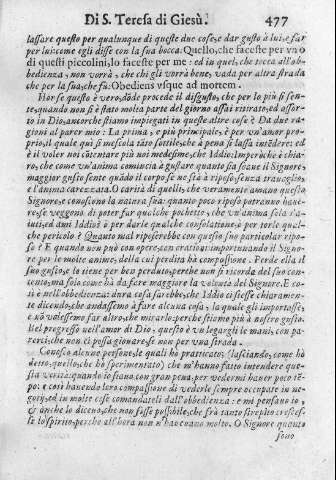 Di S. Teresa di Giesù. 477
lassare questo per qualunque di queste due cose, e dar gusto à lui, e far
per lui: come egli disse con la sua bocca. Quello, che faceste per vno
di questi piccolini, lo faceste per me: ed in quel, che tocca all'ob-
bedienza, non vorrà, che chi gli vorrà bene, vada per altra strada
che per la sua, che fù: Obediens vsque ad mortem.
Hor se questo è vero, dōde procede il disgusto, che per lo più si sen-
te, quando non si è stato molta parte del giorno assai ritirato, ed assor-
to in Dio, ancorche stiamo impiegati in queste altre cose? Da due ra-
gioni al parer mio: La prima, e più principale, è per vn'amor pro-
prio, il quale quì si mescola tāto sottile, che à pena si lassa intēdere: ed
è il voler noi cōtentare più noi medesimi, che Iddio. Imperoche è chia-
ro, che come vn'anima comincia à gustare quanto sia soaue il Signore,
maggior gusto sente quādo il corpo se ne stà à riposo senza trauaglio,
e l'anima carezzata. O carità di quelli, che veramente amano questo
Signore, e conoscono la natura sua: quanto poco riposo potranno haue-
re, se veggono di poter far qualche pochetto, che vn'anima sola s'a-
iuti, ed ami Iddio: ò per darle qualche consolatione, ò per torle qual-
che pericolo è Quanto mal riposerebbe con questo suo particolar ripo-
so? E quando non può con opere, con orationi importunando il Signo-
re per le molte anime, della cui perdita hà compassione. Perde ella il
suo gusto, e lo tiene per ben perduto, perche non si ricorda del suo con-
tento, ma solo come hà da fare maggiore la volontà del Signore. E co-
sì è nell'obbedienza: dura cosa sarebbe, che Iddio ci stesse chiaramen-
te dicendo, che andassimo à fare alcuna cosa, la quale gl'importasse,
e nō volessimo far altro, che mirarlo, perche stiamo più à nostro gusto.
Bel progresso nell'amor di Dio: questo è vn legargli le mani, con pa-
rerci, che non ci possa giouare se non per vna strada.
Conosco alcune persone, le quali hò praticato (lasciando, come hò
detto, quello, che hò sperimentato) che m'hanno fatto intendere que-
sta verità: quando io stauo con gran pena, per vedermi hauer poco tē-
po: e così hauendo loro compassione di vederle sempre occupate in ne-
gotij, ed in molte cose comandateli dall'obbedienza: e mi pensauo io,
& anche lo diceuo, che non fosse possibile, che frà tanto strepito cresces-
se lo spirito, perche all'hora non n'haueano molto. O Signore quanto
sono